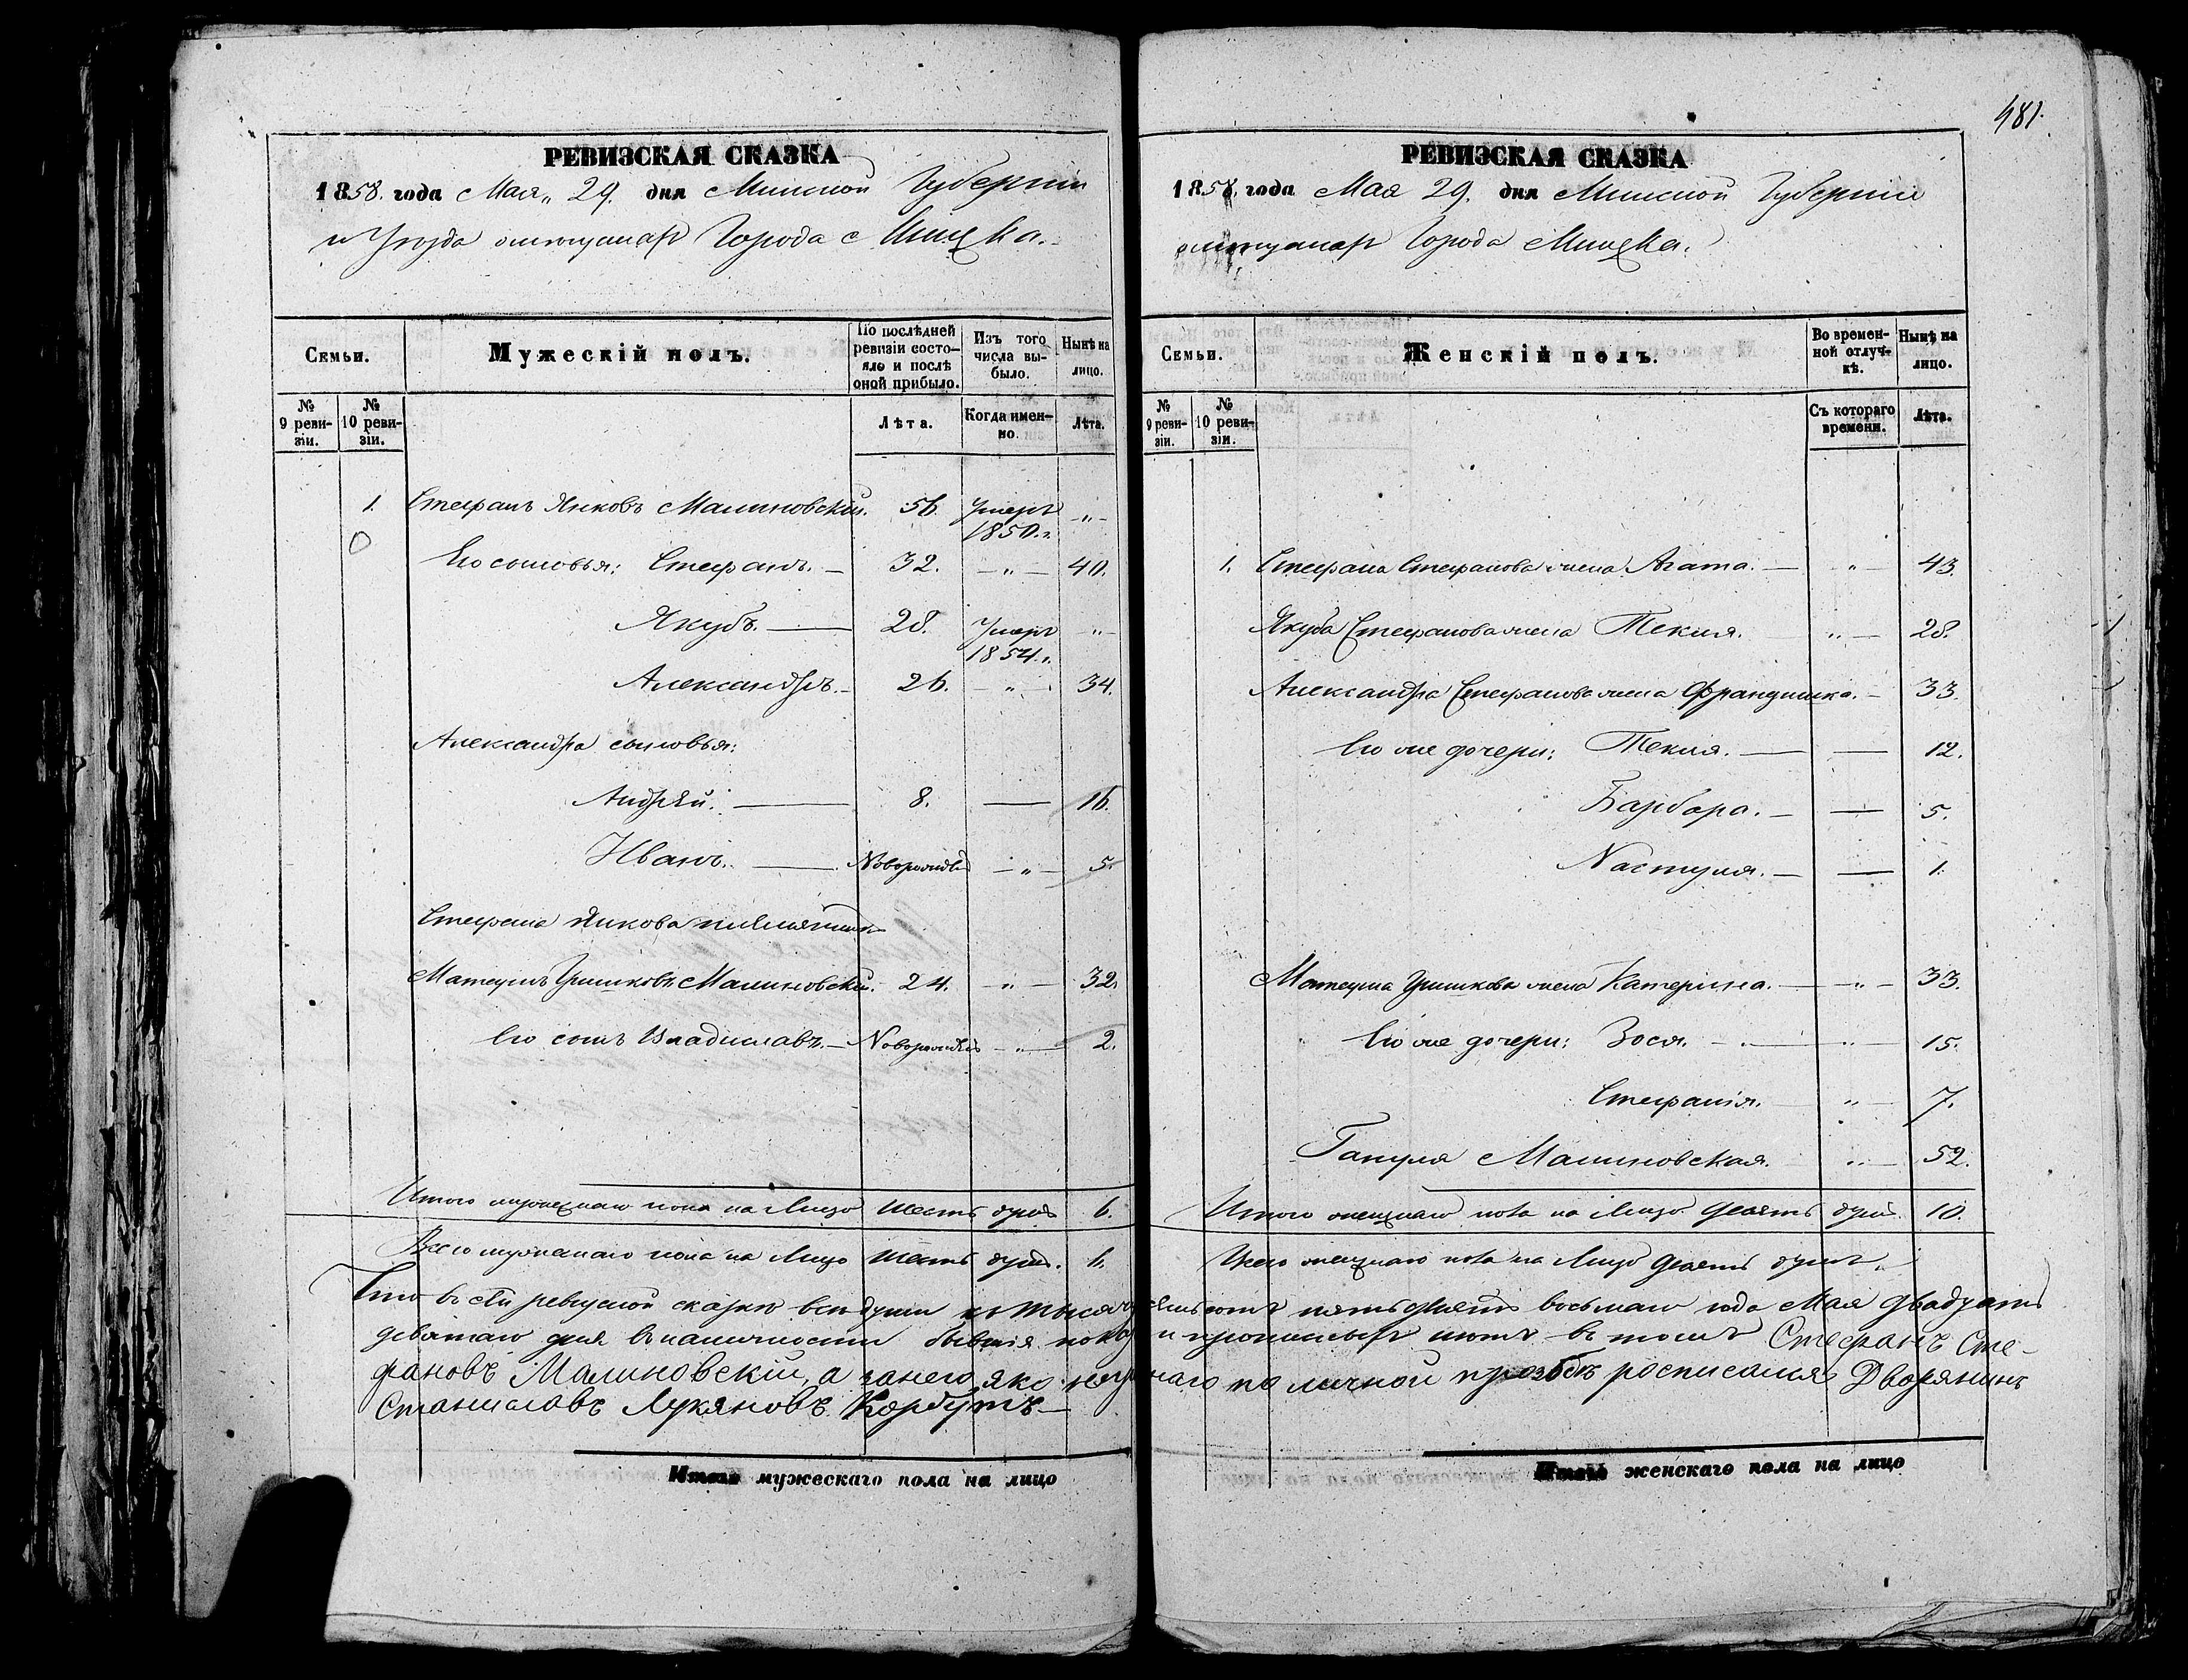 481.
РЕВИЗСКАЯ СКАЗКА
1858. года Мая 29. дня Минской Губерніи
и Уезда отпущенаго Города Минска.
Семьи.
Мужескій полъ.
По послѣдней ревизіи состояло и послѣ оной прибыло.
Изъ того числа выбыло.
Нынѣ на лицо.
№ 9 ревизіи.
№ 10 ревизіи.
Лѣта.
Когда именно.
Лѣта.
1. Стефанъ Янковъ Малиновскій. 56. Умеръ 1850.г. „
0
Его сыновья: Стефанъ. 32. „ 40.
Якубъ. 28. Умеръ 1854.г. „
Александръ. 26. „ 34.
Александра сыновья:
Андрѣй. 8. 16.
Иванъ. Новорожден „ 5.
Стефана Янкова племянник
Матеушъ Гришковъ Малиновскій. 24. „ 32.
Его сынъ Владиславъ. Новорожден „ 2.
Итого мужескаго пола на Лицо шесть душъ 6.
Всего мужескаго пола на Лицо шесть душъ. 6.
РЕВИЗСКАЯ СКАЗКА
1858. года Мая 29. дня Минской Губерніи
Города Минска.
Семьи.
Женскій полъ.
Во временной отлучкѣ.
Нынѣ на лицо.
№ 9 ревизіи.
№ 10 ревизіи.
Съ котораго времени.
Лѣта.
1. Стефана Стефанова жена Агата. „ 43.
Якуба Стефанова жена Текля. „ 28.
Александра Стефанова жена Францишка. 33.
Его же дочери: Текля. 12.
Барбара. 5.
Настуля. 1.
Матеуша Гришкова жена Катерина. „ 33.
Его же дочери: Зося. „ 15.
Стефанія. „ 7.
Гануля Малиновская. „ 52.
Итого женскаго пола на Лицо десять душъ. 10.
Всего женскаго пола на Лицо десять душъ.
Что въ сей ревизской сказке все души къ тысяча восемьсотъ пятьдесятъ восьмаго года Мая двадцать
девятаго дня въ наличности бывшія и прописныхъ нетъ въ томъ Стефанъ Сте-
фановъ Малиновскій, а за него яко неграмотнаго по личной прозбѣ росписался Дворянинъ
Станиславъ Лукяновъ Корбутъ
Итого мужескаго пола на лицо
Итого женскаго пола на лицо